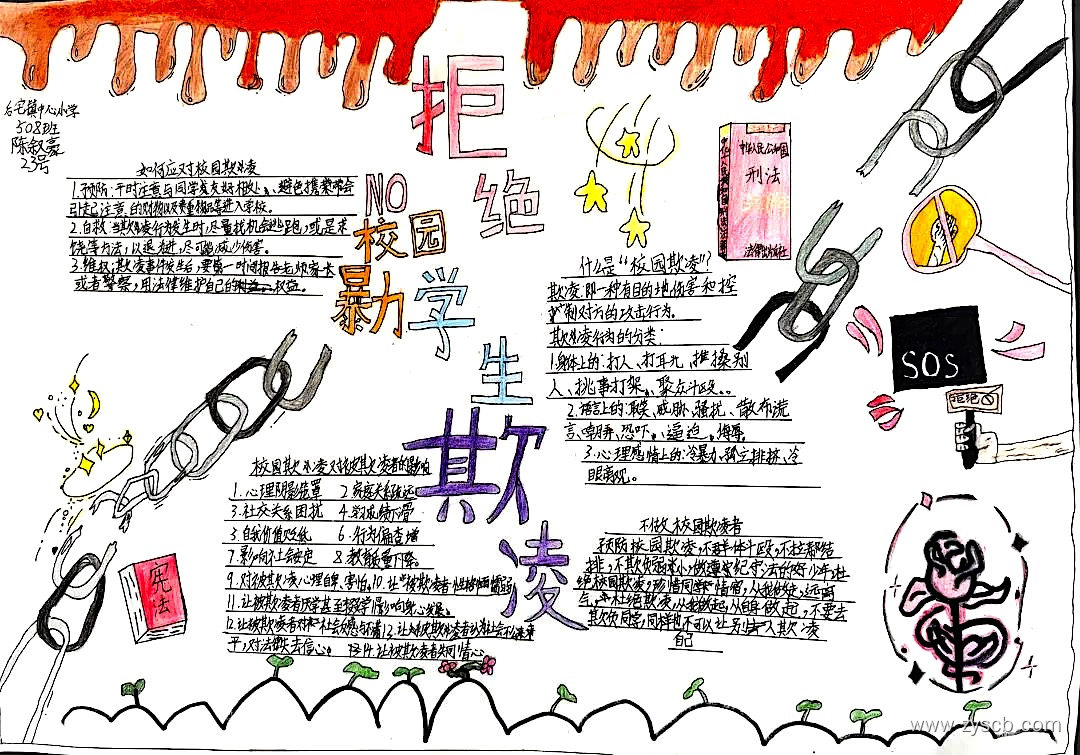 后宅镇中心小学
508班
陈叙豪
23号
拒绝学生欺凌
NO
校园
暴力
如何应对校园欺凌
1.预防:平时注意与同学发友好相处、避免携带会
引起己注意的财物以及贵重物品等进入学校。
2.自救:当欺凌行为发生时,尽量找机会逃跑,或是求
饶等方法,以退为进,尽可能减少伤害。
3.维权:欺凌事件发生后,要第一时间报告老师家长
或者警察,用法律维护自己的权益。
中华人民共和国
刑法
法律出版社
什么是“校园欺凌”?
欺凌:即一种有目的地伤害和控
制对方的攻击行为。
欺凌行为的分类:
1.身体上的:打人、打耳光、推搡别
人、挑事打架、聚众斗殴。
2.语言上的:取笑、威胁、骚扰、散布流
言、嘲弄、恐吓、逼迫、侮辱。
3.心理感情上的:冷暴力、孤立排挤、冷
眼离观。
SOS
拒绝
校园欺凌对被欺凌者的影响
1.心理阴影笼罩 2.家庭关系疏远
3.社交关系困扰 4.学习成绩下滑
3.自我价值改贬 6.行为偏差增
7.影响社会安定 8.教育质量下降
9.对被欺凌心理自卑、害怕,10.让被欺凌者
11.让被欺凌者厌学甚至辍学影响身心发展。
12.让被欺凌者对社会的感与不满
平,对法律失去信心。 14.让被欺凌者失同情心
宪法
不做校园欺凌者
预防校园欺凌,不群体斗殴,不拉帮结
排,不欺负弱小,做遵守纪守法的好少年,杜
绝校园欺凌,珍惜同学情窗,从我做起,远离
杜绝欺凌,从我做起,从自身做起,不要去
欺负同学,同样也不可以让别人欺凌
自己
www.zyscb.com